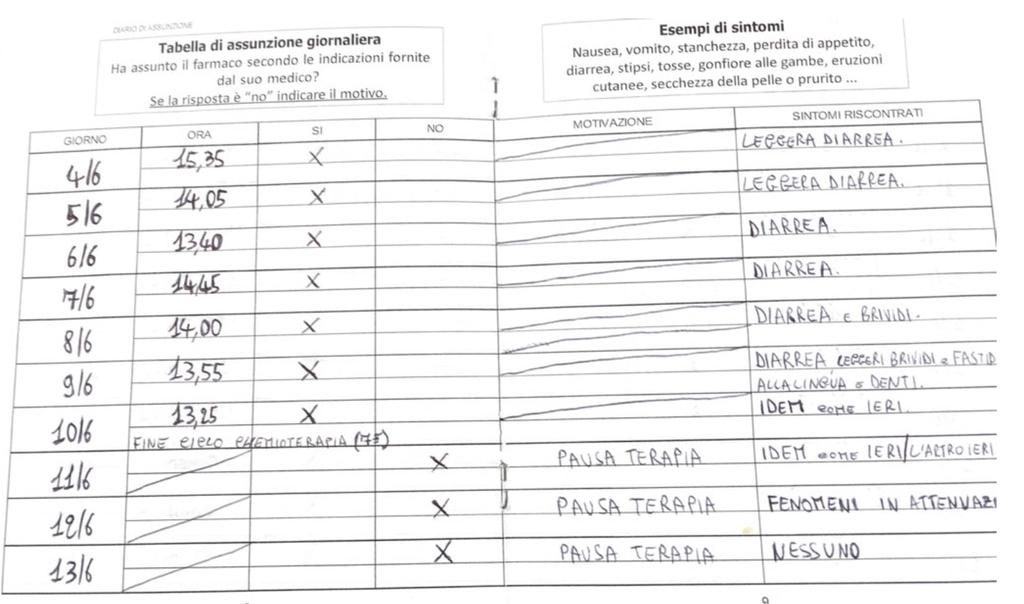 DIARIO DI ASSUNZIONE
Tabella di assunzione giornaliera
Ha assunto il farmaco secondo le indicazioni fornite
dal suo medico?
Se la risposta è “no” indicare il motivo.
Esempi di sintomi
Nausea, vomito, stanchezza, perdita di appetito,
diarrea, stipsi, tosse, gonfiore alle gambe, eruzioni
cutanee, secchezza della pelle o prurito ...
GIORNO ORA SI NO MOTIVAZIONE SINTOMI RISCONTRATI
4/6 15,35 X LEGGERA DIARREA.
5/6 14,05 X LEGGERA DIARREA.
6/6 13,40 X DIARREA.
7/6 14,45 X DIARREA.
8/6 14,00 X DIARREA E BRIVIDI.
9/6 13,55 X DIARREA LEGGERI BRIVIDI E FASTID
ALLA LINGUA E DENTI.
10/6 13,25 X IDEM COME IERI.
FINE CICLO CHEMIOTERAPIA (75)
11/6 X PAUSA TERAPIA IDEM COME IERI/L'ALTRO IERI
12/6 X PAUSA TERAPIA FENOMENI IN ATTENUAZI
13/6 X PAUSA TERAPIA NESSUNO
9